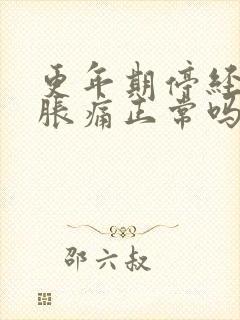 更年期停经
胀痛正常吗
邵六叔